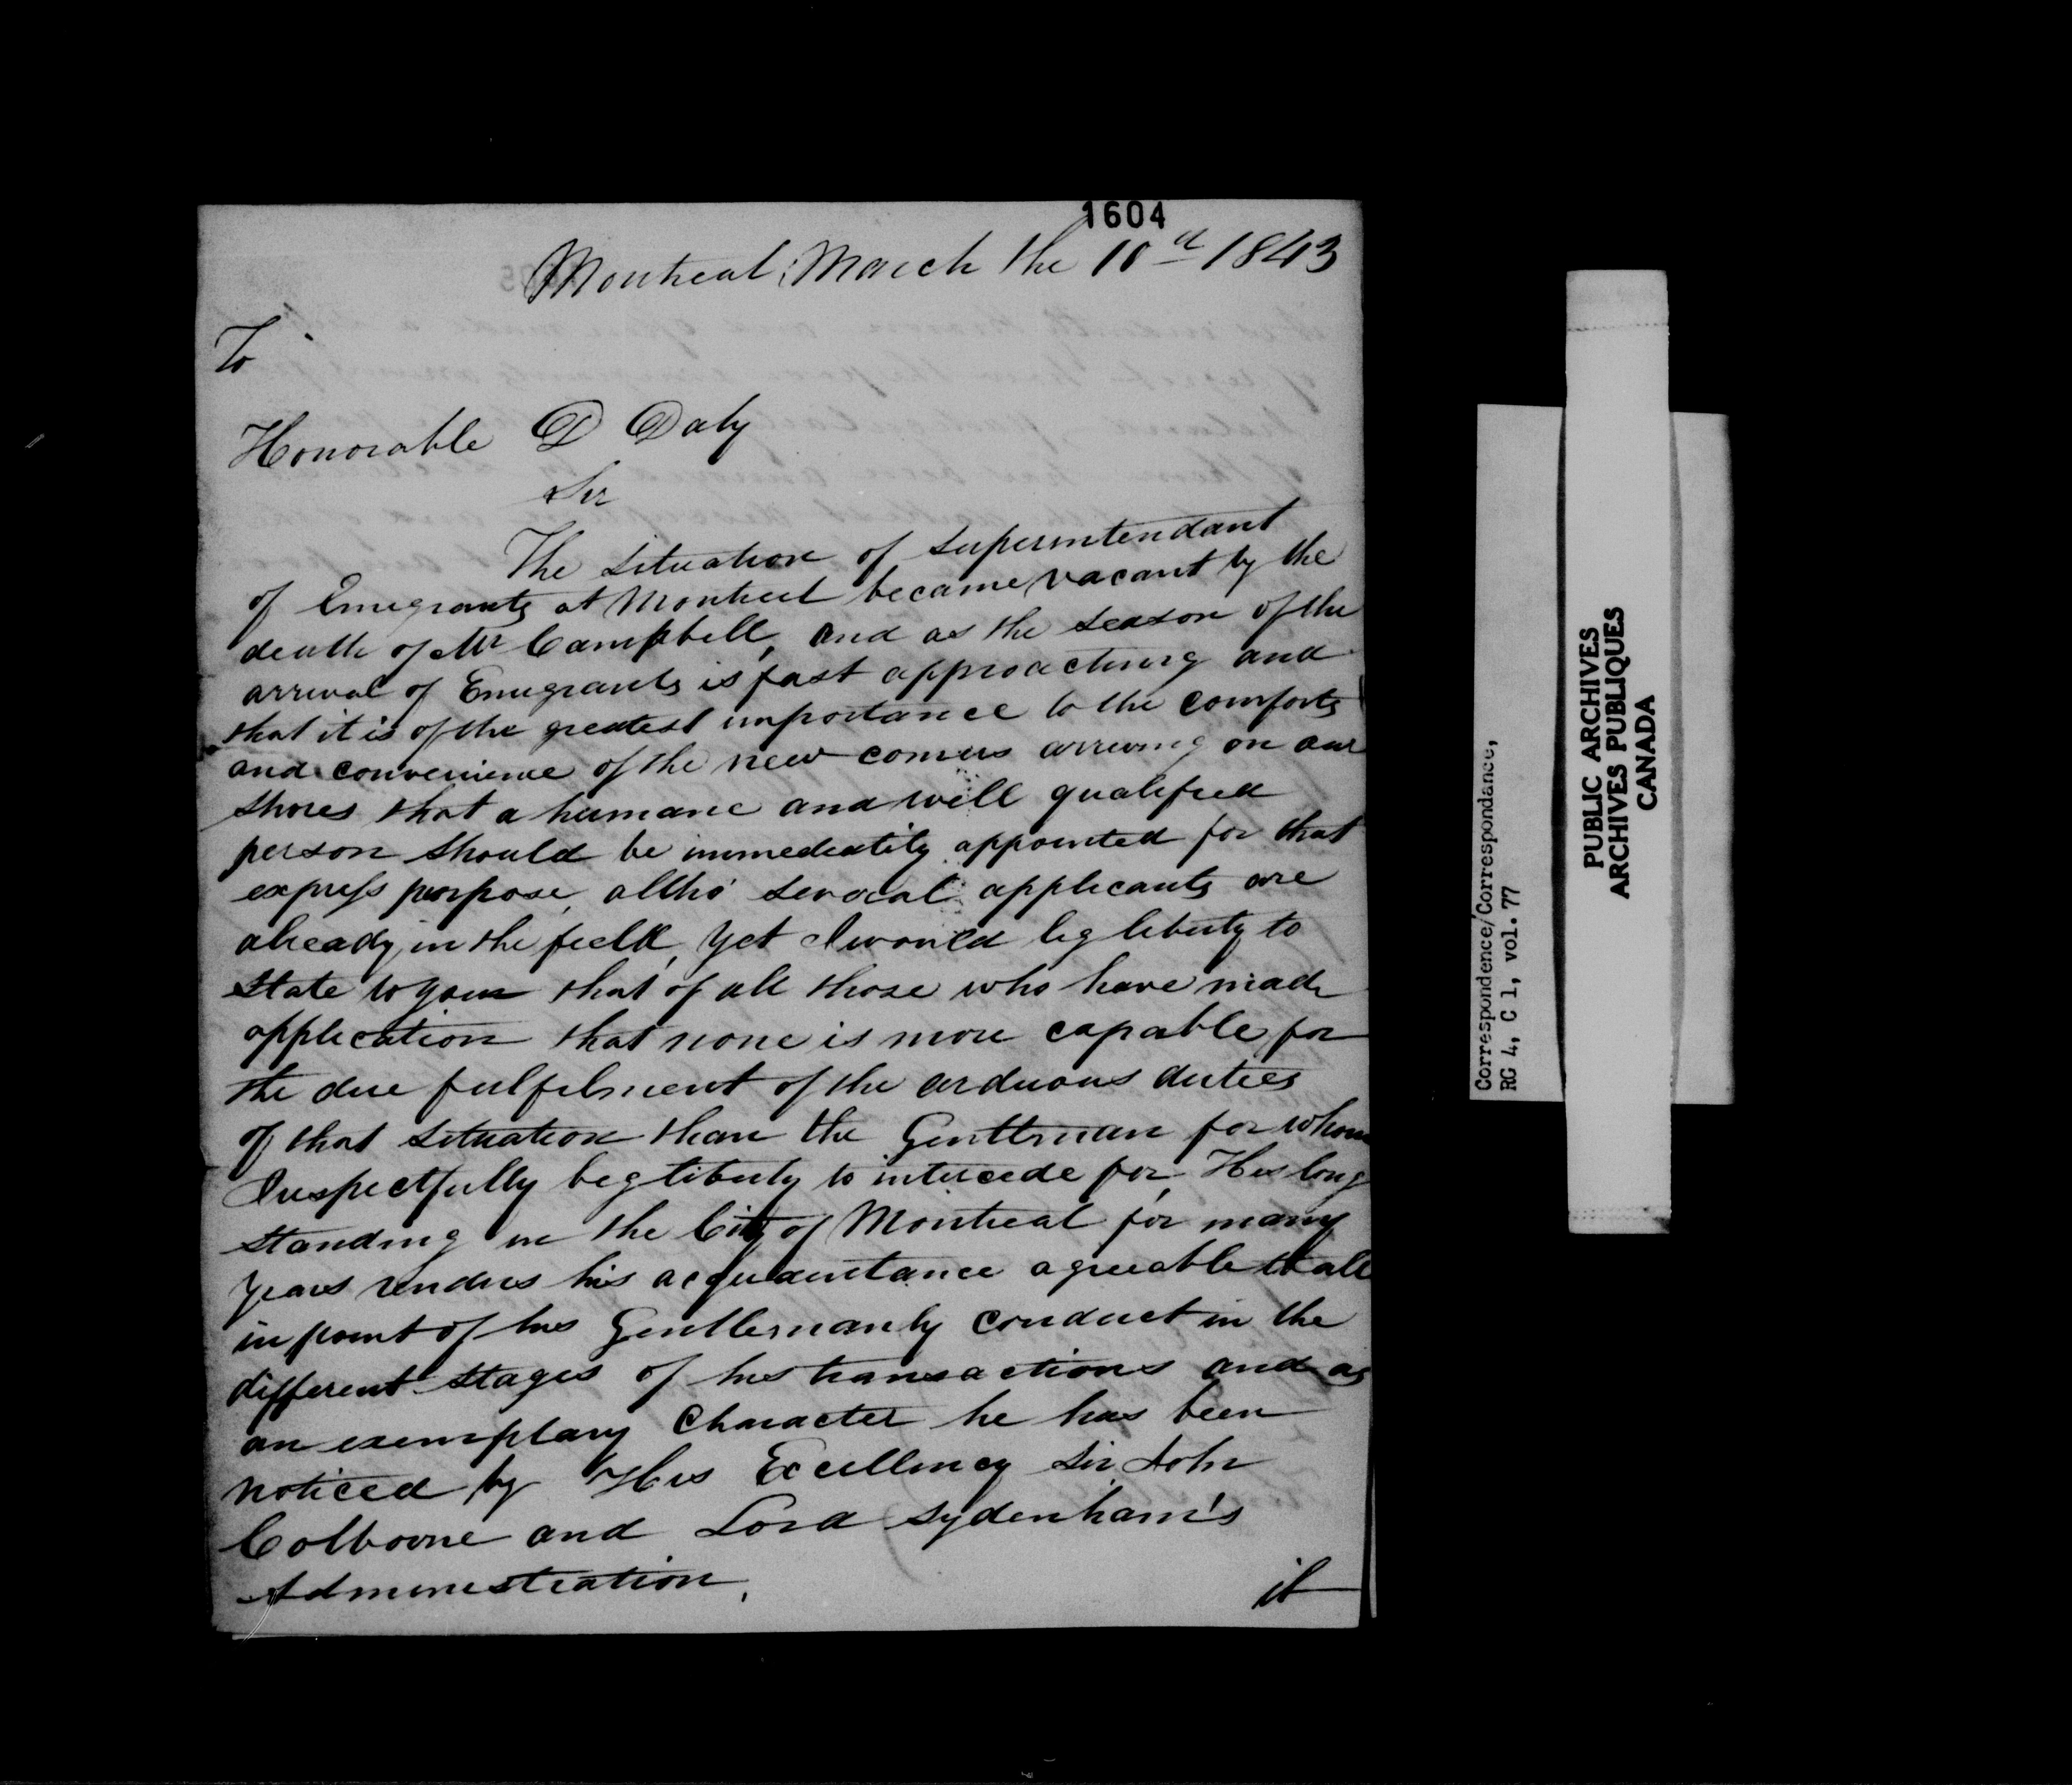 1604
Montreal March the 10th 1843
To
Honorable D Daly
Sir
The Situation of Superintendant
of Emegrants at Montreal became vacant by the
death of Mr Campbell, and as the season of the
arrival of Emegrants is fast approaching and
that it is of the greatest importance to the comforts
and convenience of the new comers arriving on our
shores that a humane and well qualified
person should be immediatily appointed for that
express purpose, altho' several applicants are
already in the field, yet I would beg liberty to
state to your that of all those who have made
application that none is more capable for
the due fulfilment of the arduous duties
of that situation than the Gentleman for whom
I respectfully beg liberty to intercede for, His long
standing in the City of Montreal for many
years renders his acquaintance agreeable to all
in point of his Gentlemanly conduct in the
different stages of his transactions and as
an exemplary Character he has been
noticed by His Excellency Sir John
Colborne and Lord Sydenham's
Administration.
it
Correspondence/Correspondance,
RG 4, C 1, vol. 77
PUBLIC ARCHIVES
ARCHIVES PUBLIQUES
CANADA